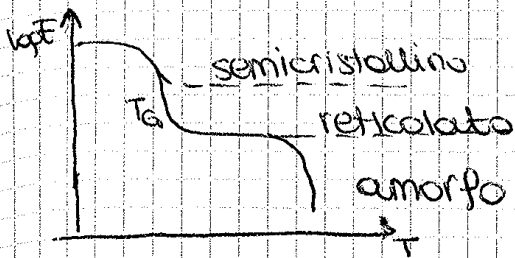 logE
semicristallino
TG
reticolato
amorfo
T